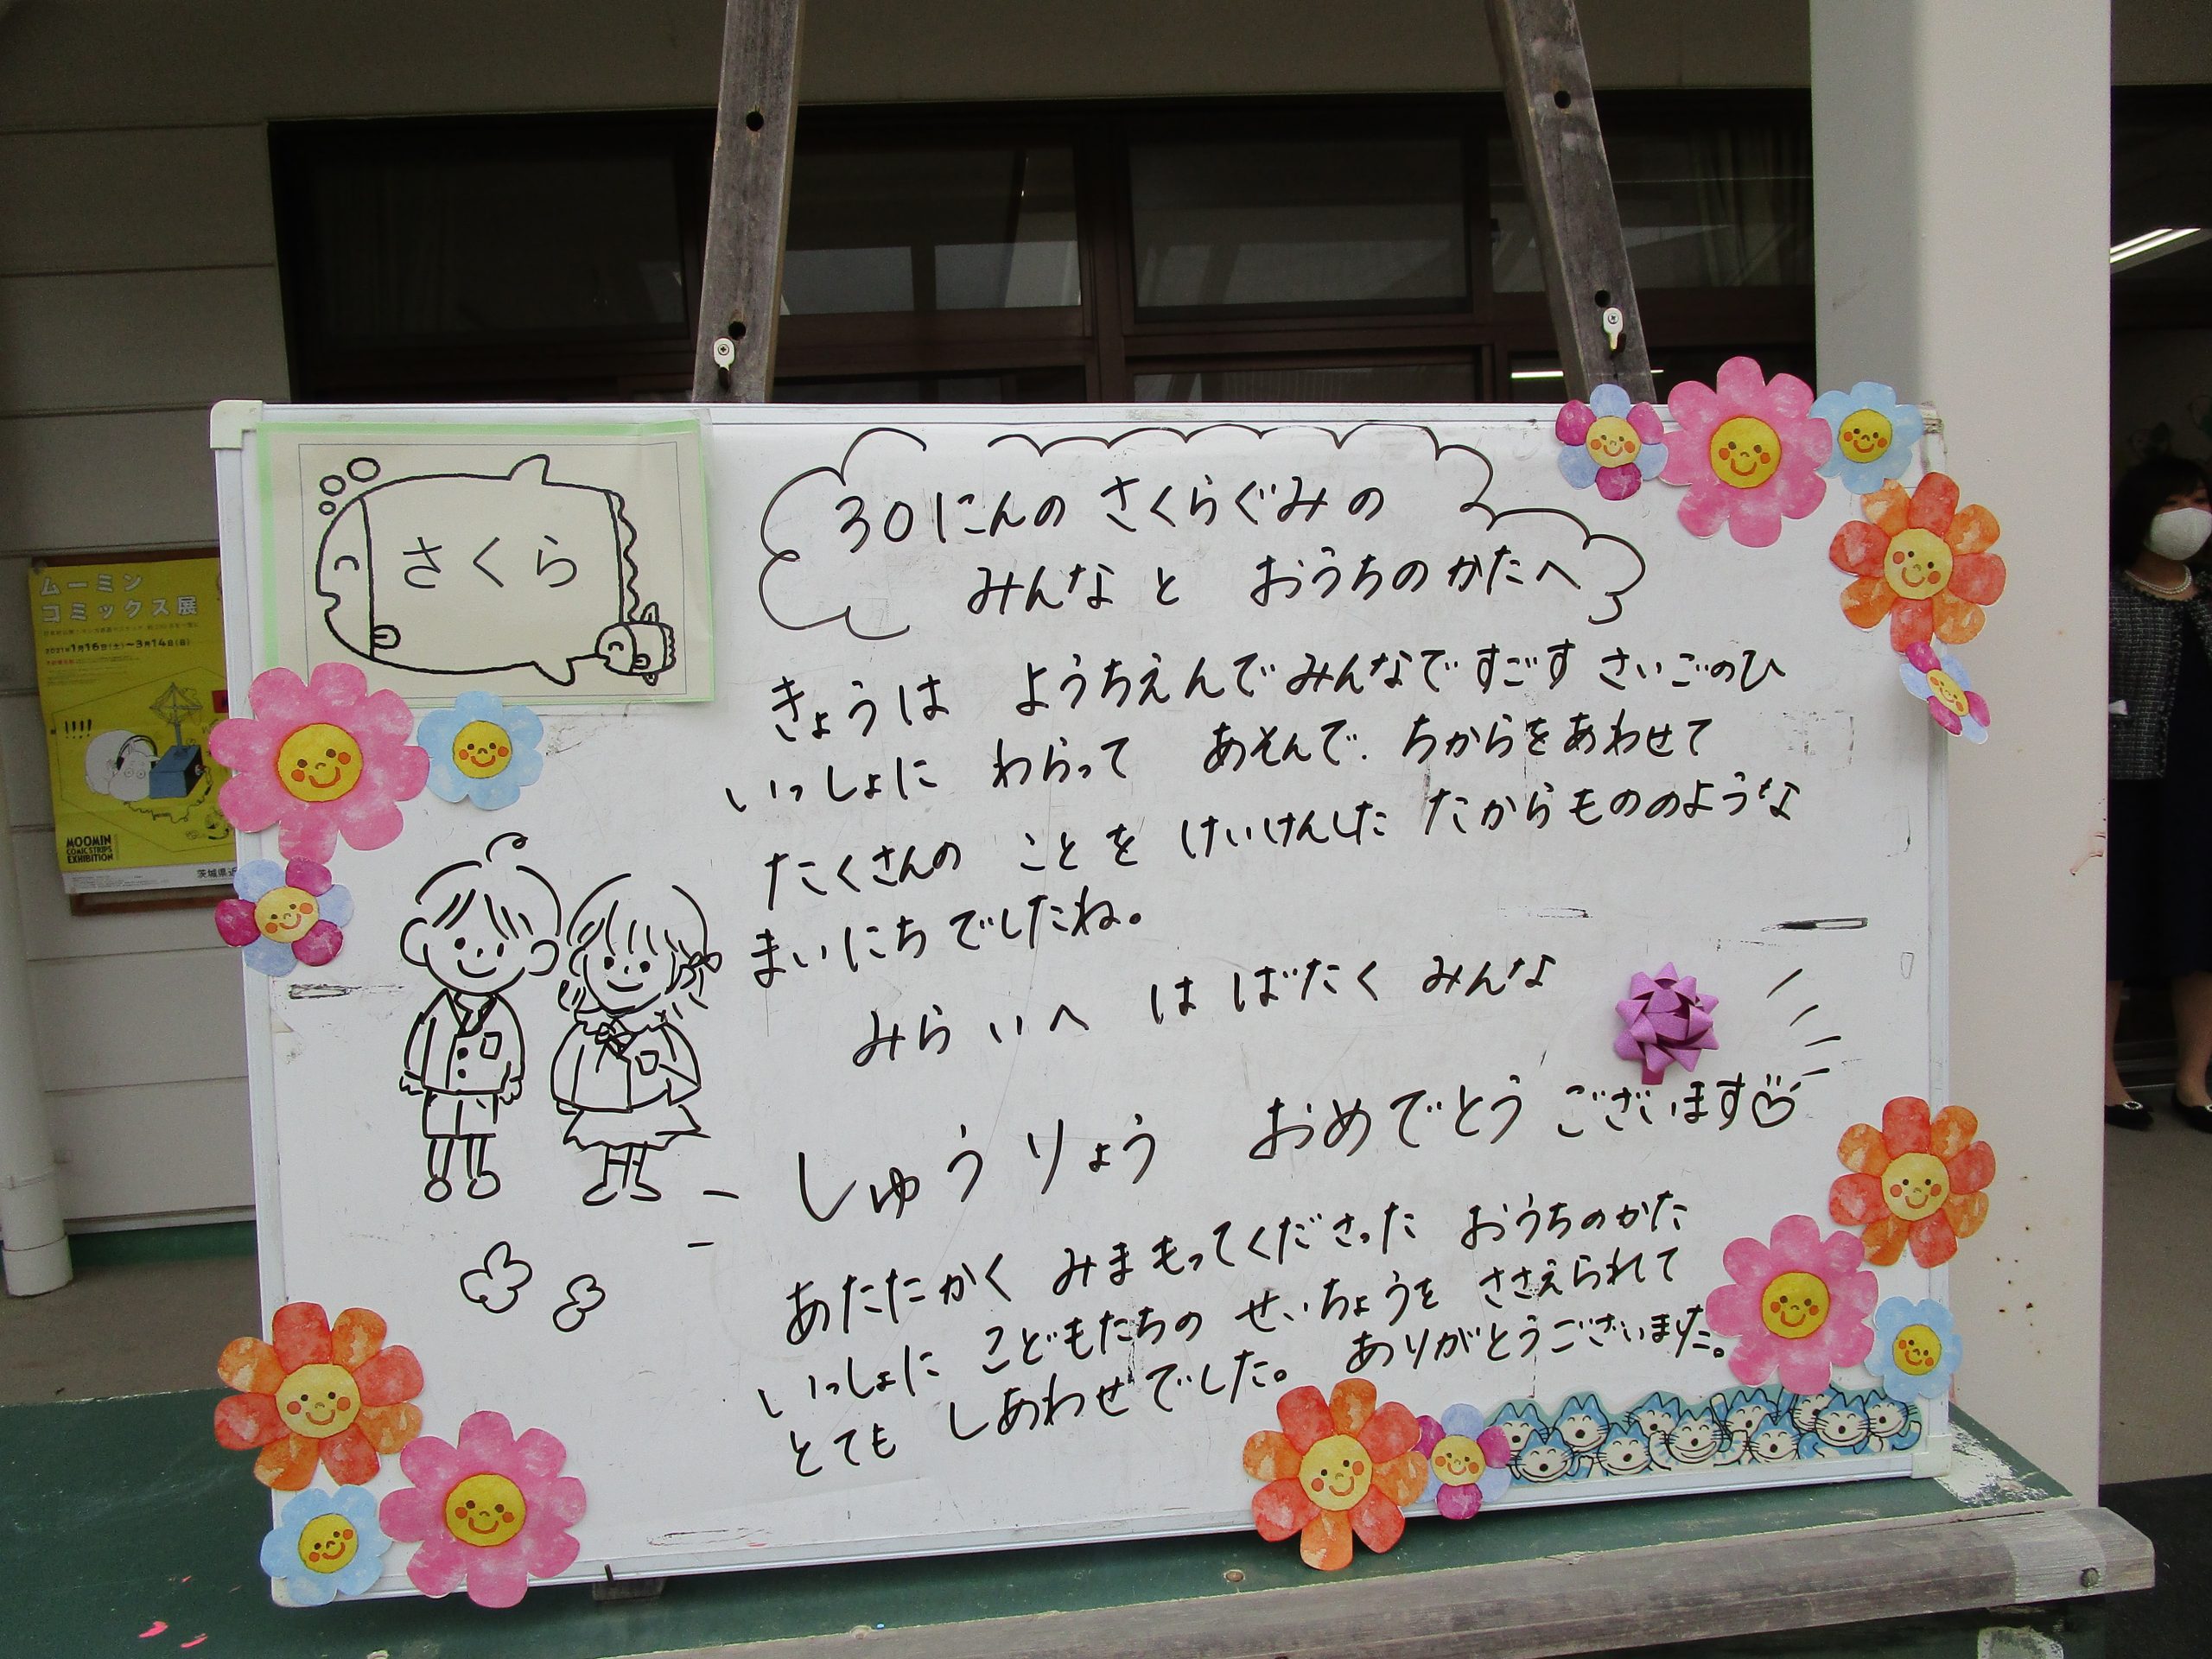 さくら
30にんの さくらぐみの
みんなと おうちのかたへ
きょうは ようちえんでみんなですごす さいごのひ
いっしょに わらって あそんで、ちからをあわせて
たくさんの ことを けいけんした たからもののような
まいにちでしたね。
みらいへ はばたく みんな
しゅうりょう おめでとう ございます♡
あたたかく みまもってくださった おうちのかた
いっしょに こどもたちの せいちょうを ささえられて
とても しあわせでした。 ありがとうございました。
ムーミン
コミックス展
2021年1月16日(土)〜3月14日(日)
MOOMIN
COMIC STRIPS
EXHIBITION
茨城県近